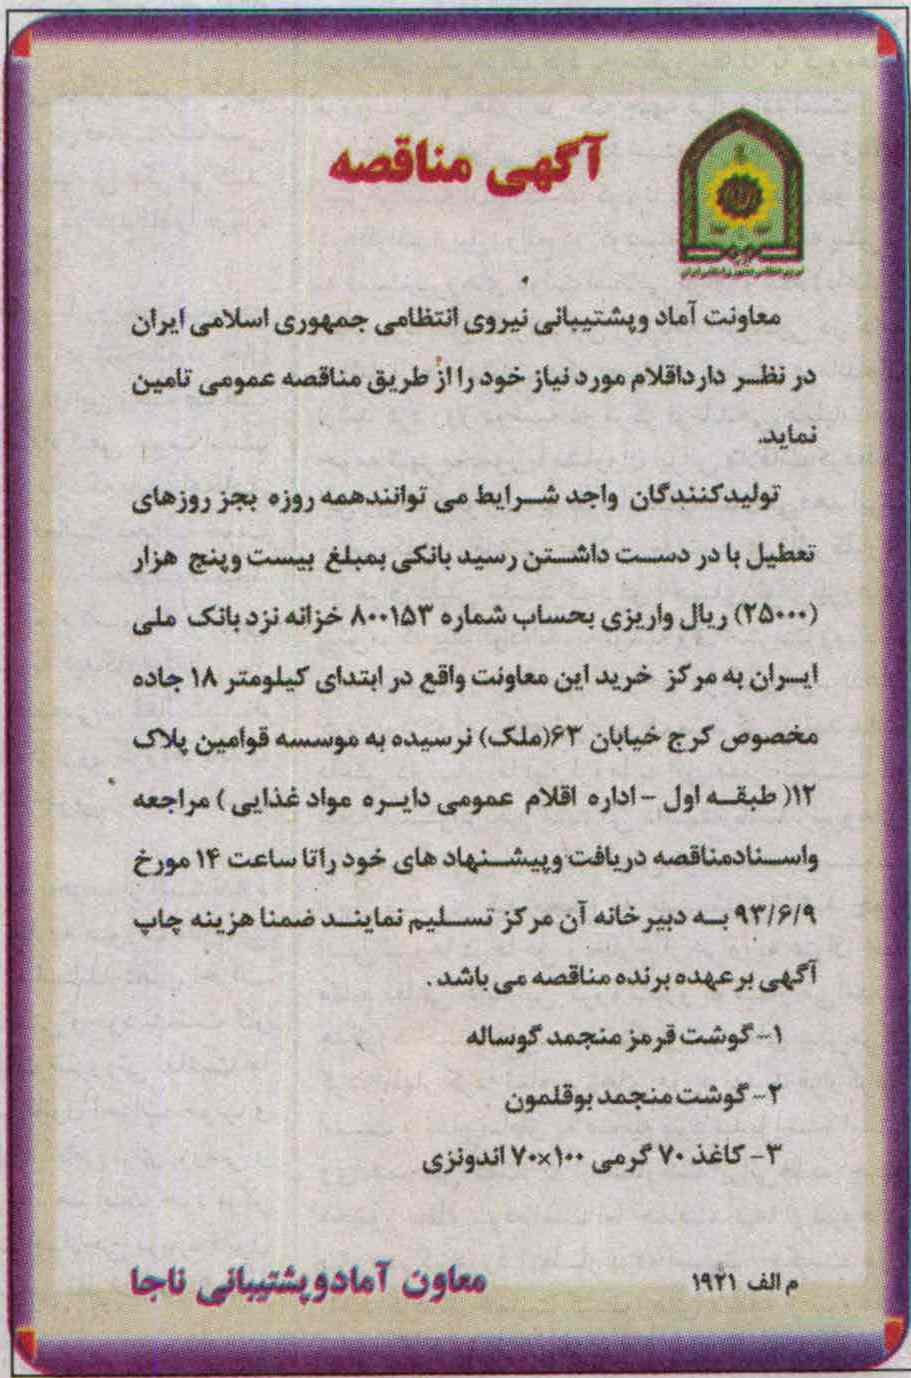 آگهی مناقصه
نیروی انتظامی جمهوری اسلامی ایران
معاونت آماد وپشتیبانی نیروی انتظامی جمهوری اسلامی ایران
در نظر دارداقلام مورد نیاز خود را از طریق مناقصه عمومی تامین
نماید.
تولیدکنندگان واجد شرایط می توانندهمه روزه بجز روزهای
تعطیل با در دست داشتن رسید بانکی بمبلغ بیست وپنج هزار
(۲۵۰۰۰) ریال واریزی بحساب شماره ۸۰۰۱۵۳ خزانه نزد بانک ملی
ایران به مرکز خرید این معاونت واقع در ابتدای کیلومتر ۱۸ جاده
مخصوص کرج خیابان ۶۳(ملک) نرسیده به موسسه قوامین پلاک
۱۲( طبقه اول - اداره اقلام عمومی دایره مواد غذایی ) مراجعه
واسنادمناقصه دریافت وپیشنهاد های خود راتا ساعت ۱۴ مورخ
۹۳/۶/۹ به دبیرخانه آن مرکز تسلیم نمایند ضمنا هزینه چاپ
آگهی برعهده برنده مناقصه می باشد .
۱- گوشت قرمز منجمد گوساله
۲- گوشت منجمد بوقلمون
۳- کاغذ ۷۰ گرمی ۱۰۰×۷۰ اندونزی
م الف ۱۹۲۱
معاون آمادوپشتیبانی ناجا